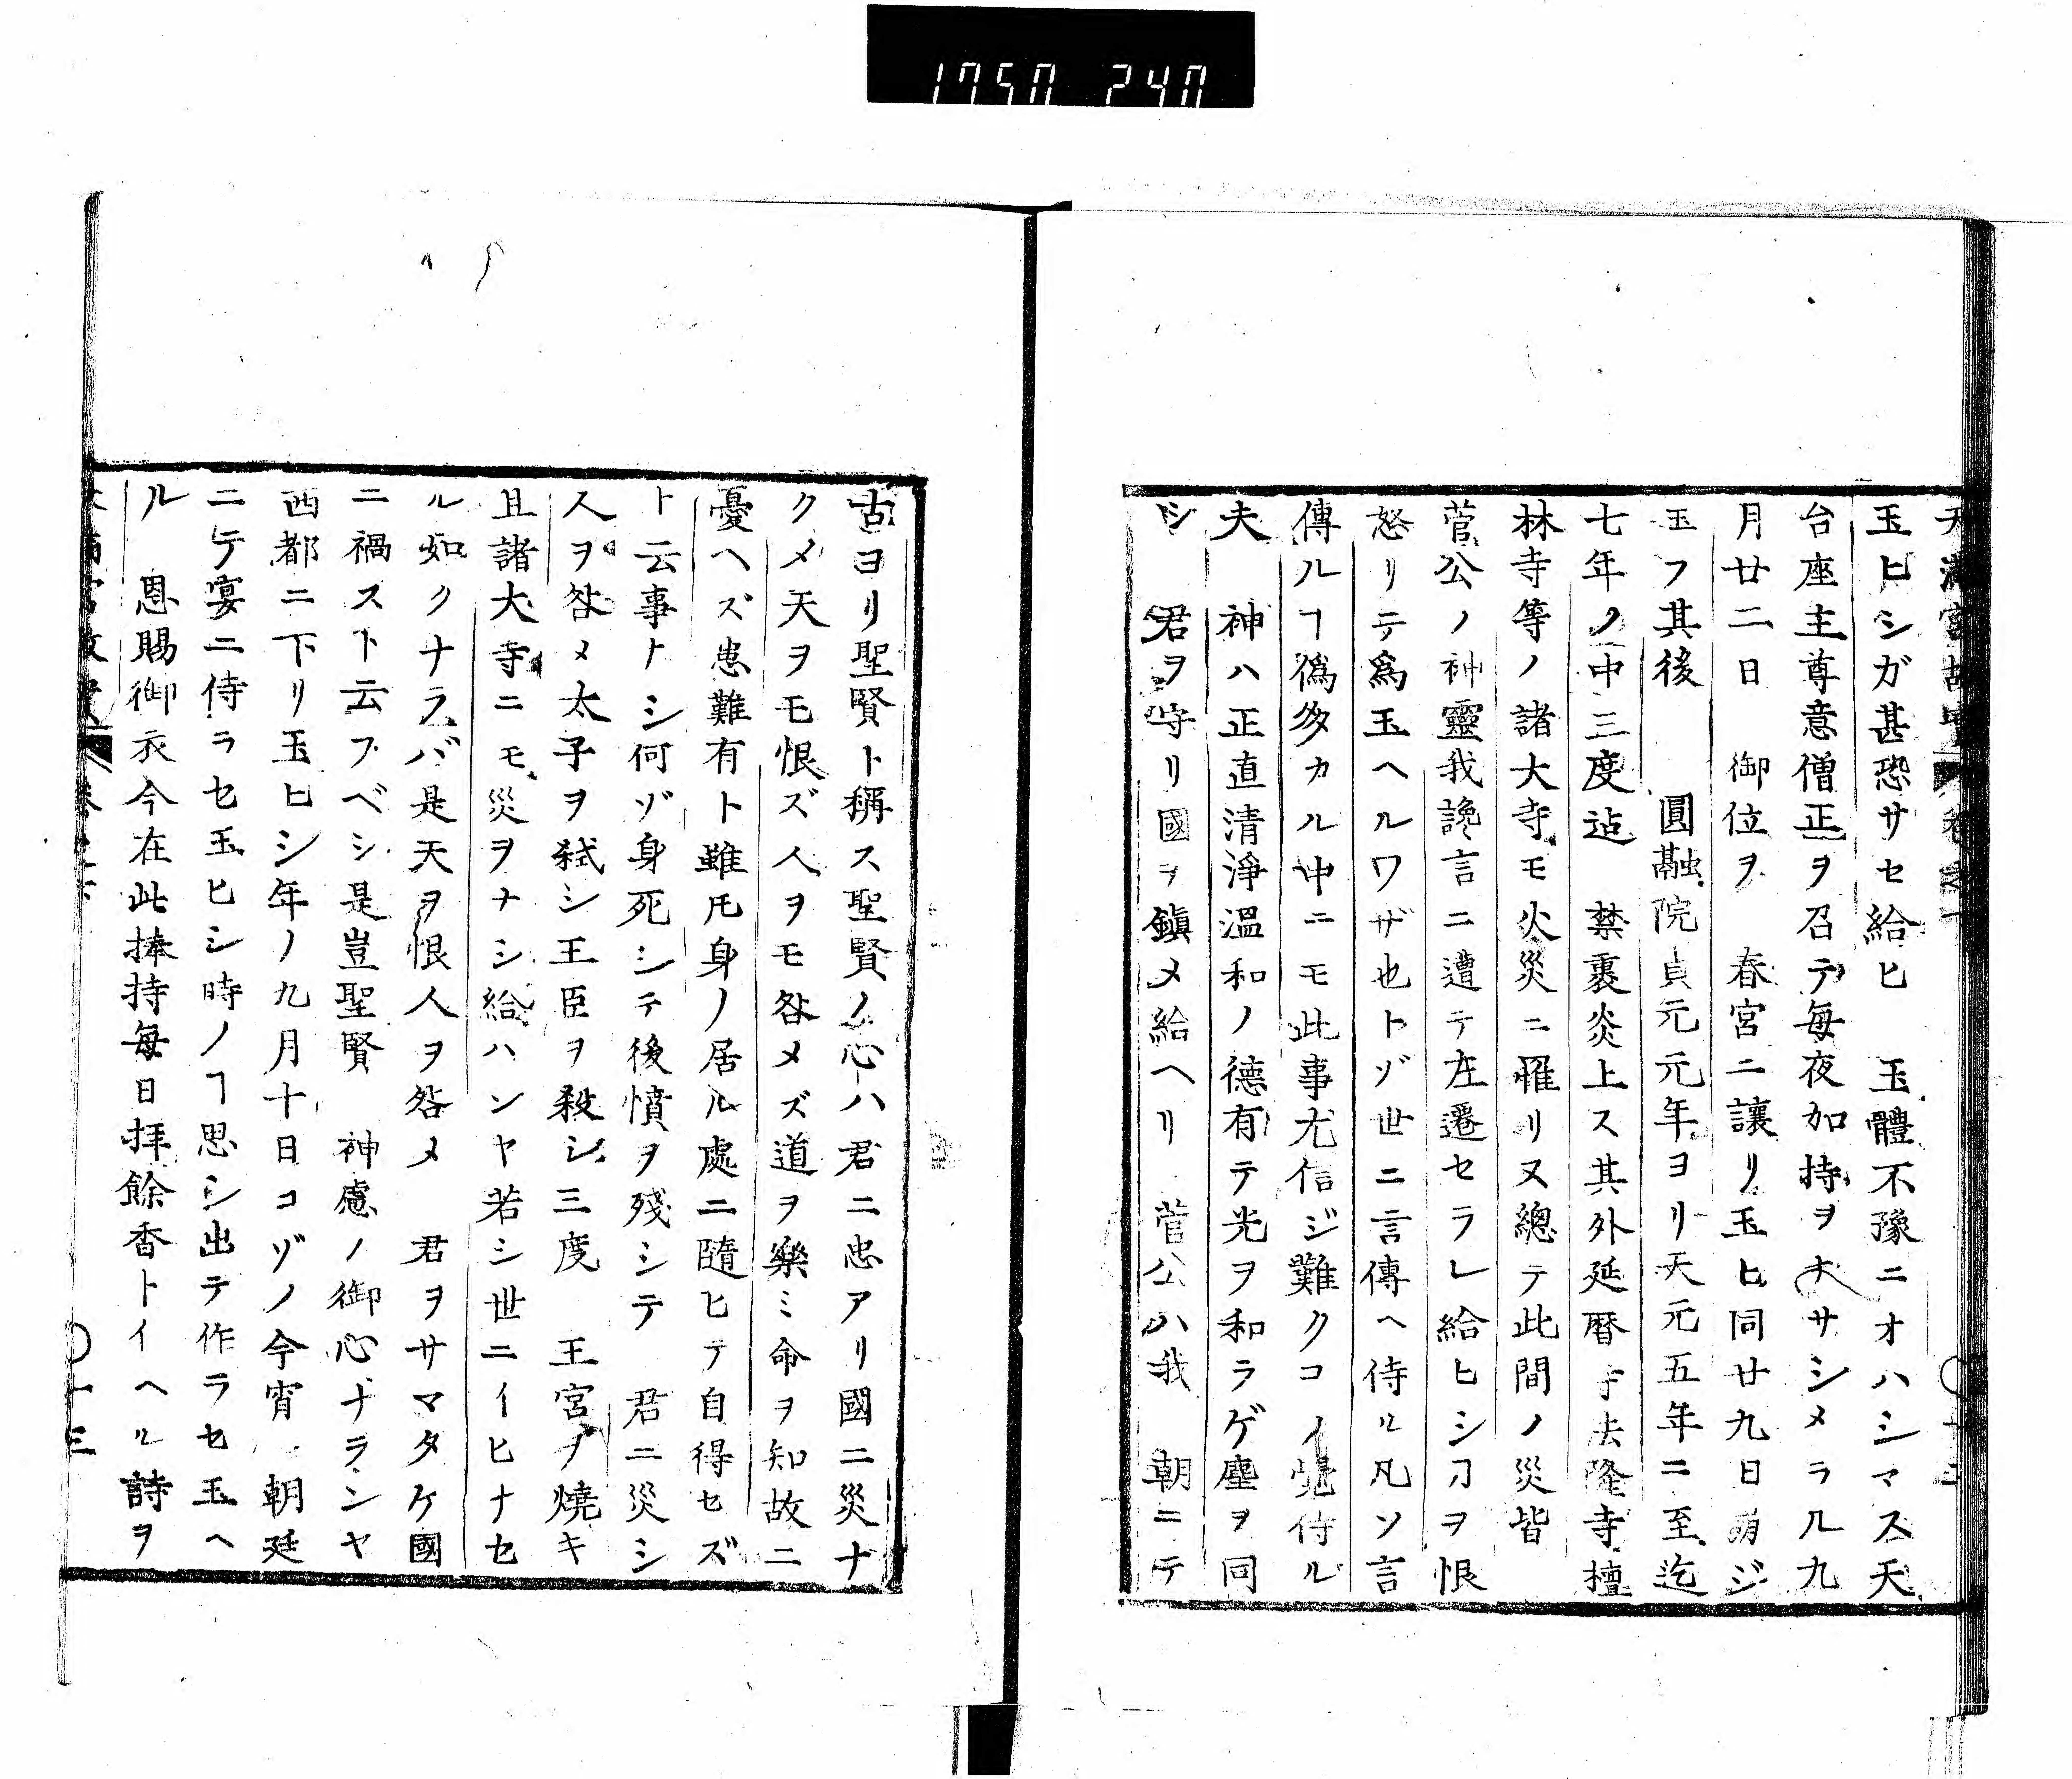 1750 240
天滿宮故實 卷之下 〇十三
玉ヒシガ甚恐サセ給ヒ 玉體不豫ニオハシマス天
台座主尊意僧正ヲ召テ每夜加持ヲナサシメラル九
月廿二日 御位ヲ 春宮ニ讓リ玉ヒ同廿九日崩ジ
玉フ其後 圓融院貞元元年ヨリ天元五年ニ至迄
七年ノ中三度迠 禁裏炎上ス其外延曆寺法隆寺檀
林寺等ノ諸大寺モ火災ニ罹リヌ總テ此間ノ災皆
菅公ノ神靈我讒言ニ遭テ左遷セラレ給ヒシヿヲ恨
怒リテ爲玉ヘルワザ也トゾ世ニ言傳ヘ侍ル凡ソ言
傳ルヿ僞多カル中ニモ此事尤信ジ難クコソ覺侍ル
夫 神ハ正直清淨溫和ノ德有テ光ヲ和ラゲ塵ヲ同
シ 君ヲ守リ國ヲ鎭メ給ヘリ 菅公ハ我 朝ニテ
古ヨリ聖賢ト稱ス聖賢ノ心ハ君ニ忠アリ國ニ災ナ
クメ天ヲモ恨ズ人ヲモ咎メズ道ヲ樂ミ命ヲ知故ニ
憂ヘズ患難有ト雖𪜈身ノ居ル處ニ隨ヒテ自得セズ
ト云事ナシ何ゾ身死シテ後憤ヲ殘シテ 君ニ災シ
人ヲ咎メ太子ヲ弑シ王臣ヲ殺シ三度 王宮ヲ燒キ
且諸大寺ニモ災ヲナシ給ハンヤ若シ世ニイヒナセ
ル如クナラバ是天ヲ恨人ヲ咎メ 君ヲサマタケ國
ニ禍スト云フベシ是豈聖賢 神慮ノ御心ナランヤ
西都ニ下リ玉ヒシ年ノ九月十日コゾノ今宵 朝廷
ニテ宴ニ侍ラセ玉ヒシ時ノヿ思シ出テ作ラセ玉ヘ
ル 恩賜御衣今在此捧持每日拜餘香トイヘル詩ヲ
〇十三